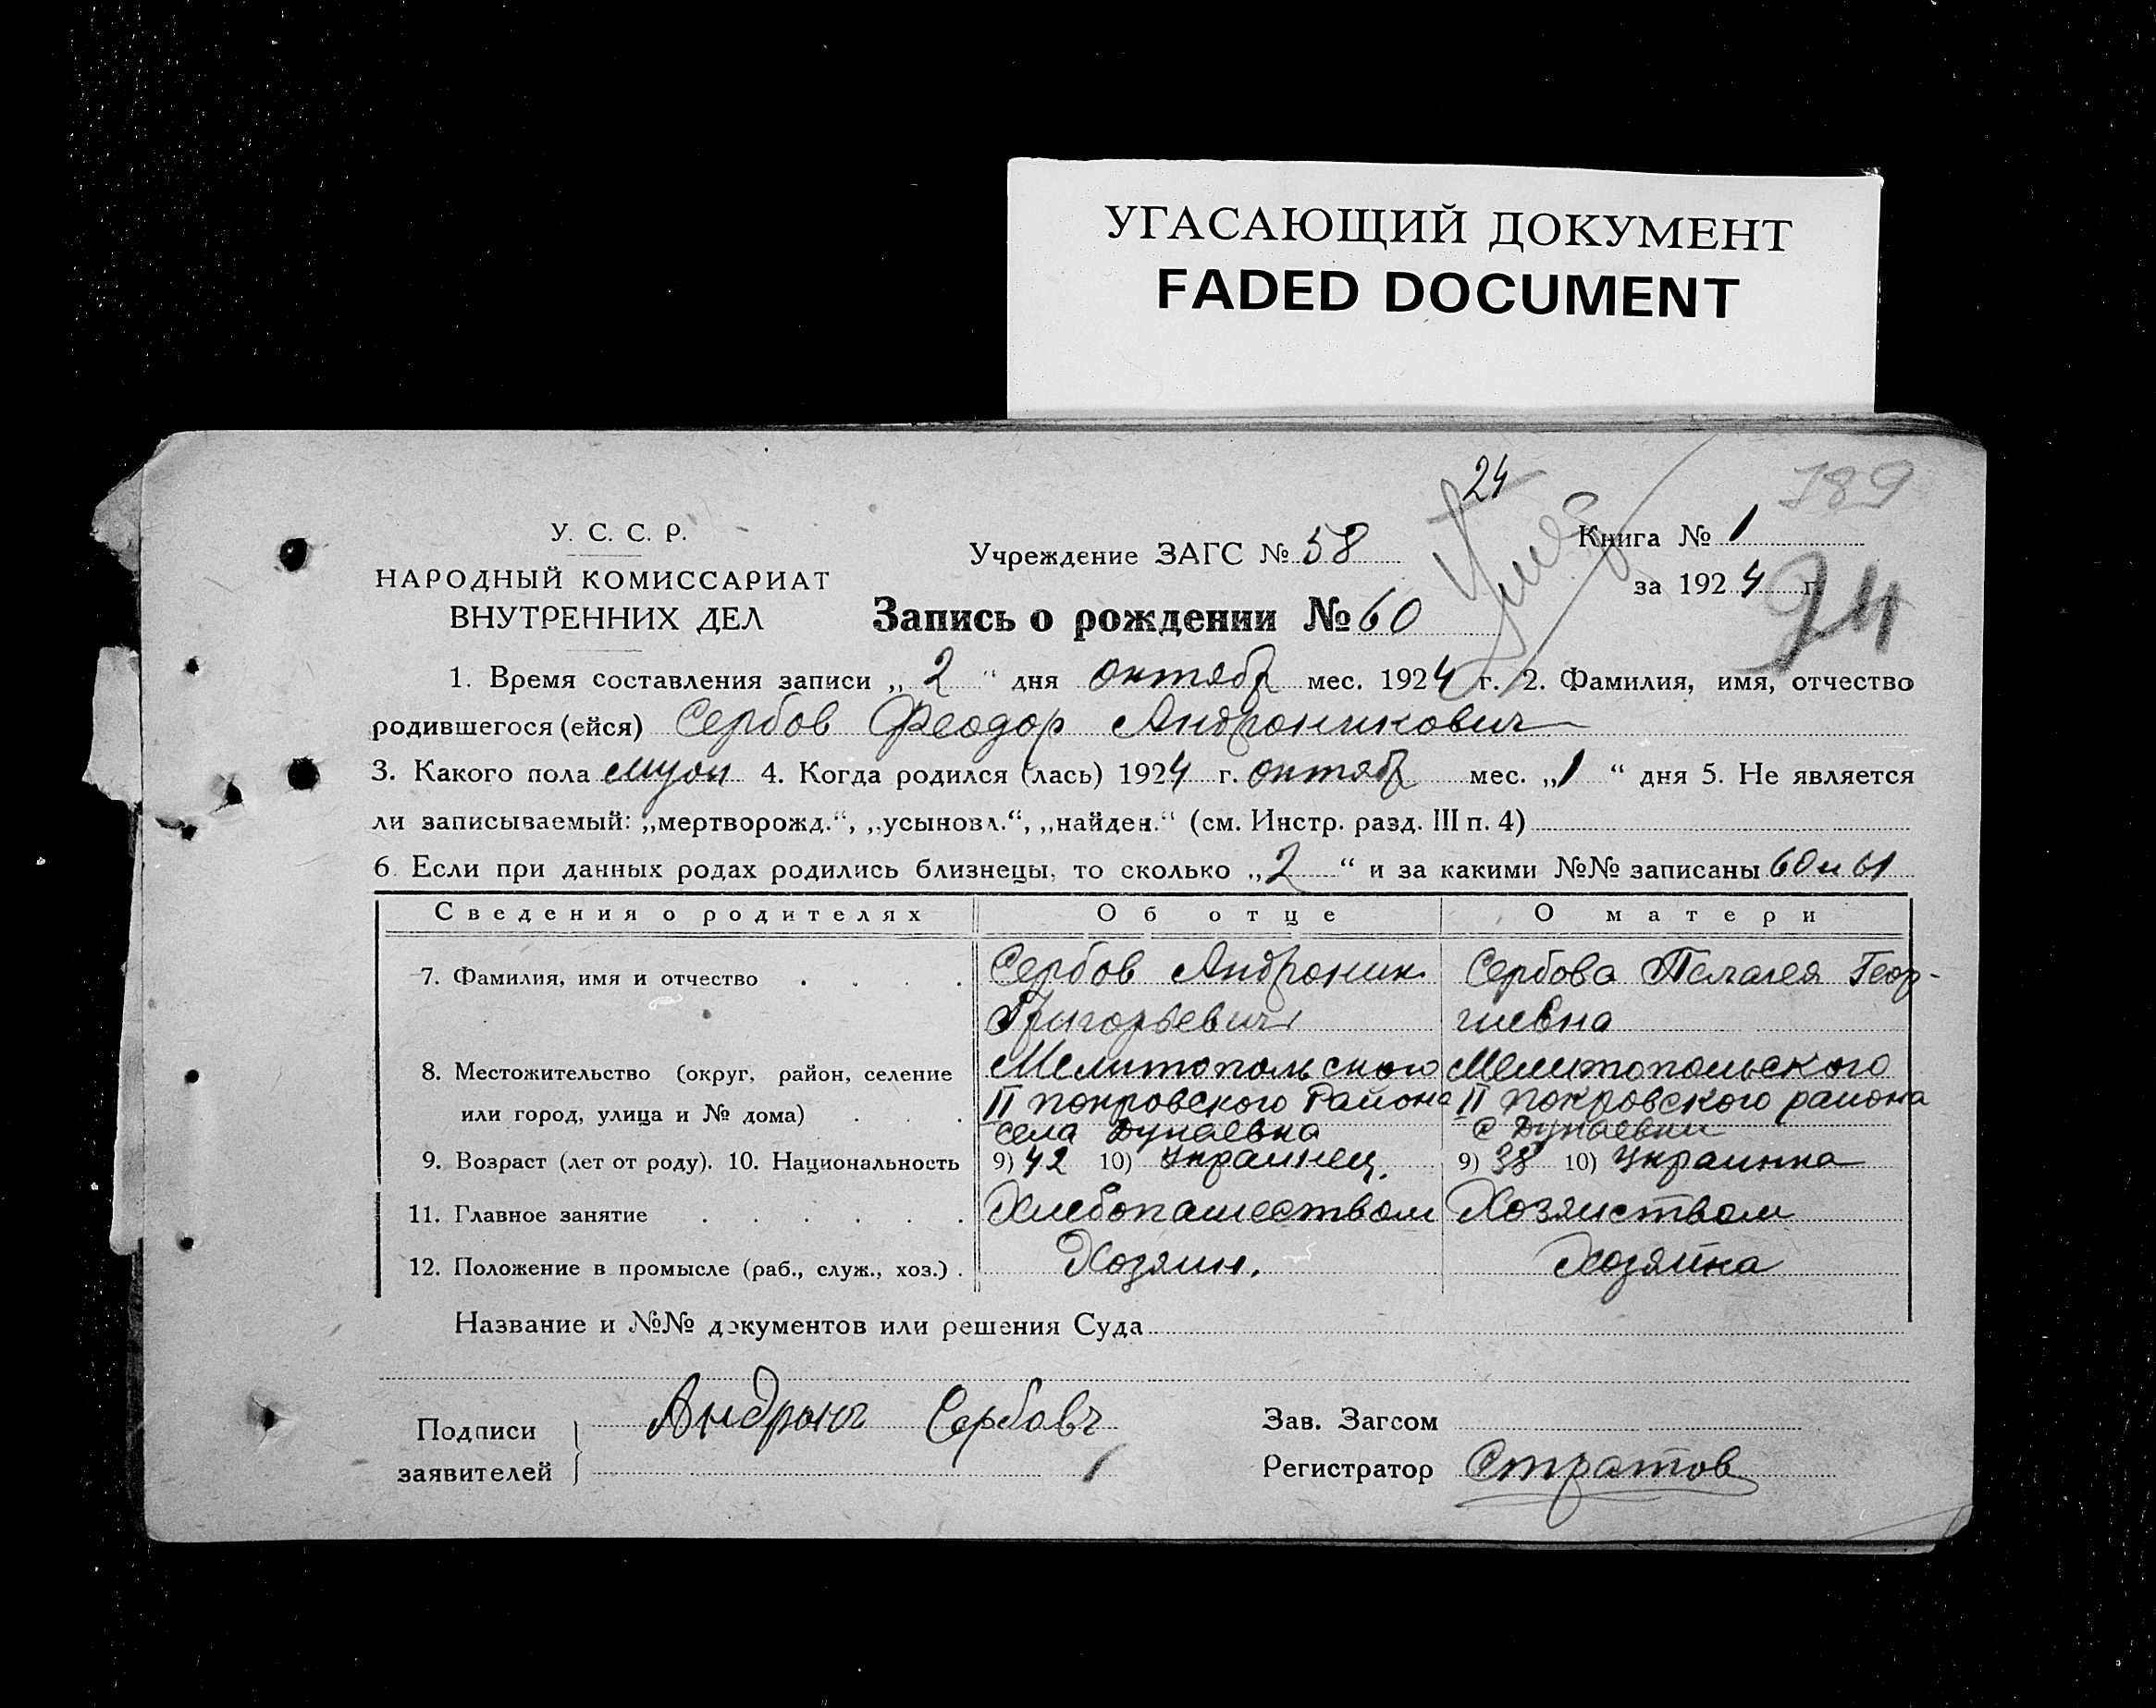 УГАСАЮЩИЙ ДОКУМЕНТ
FADED DOCUMENT
24
789
У. С. С. Р.
НАРОДНЫЙ КОМИССАРИАТ
ВНУТРЕННИХ ДЕЛ
Учреждение ЗАГС № 58
Книга № 1
за 1924 г.
24
Запись о рождении № 60
1. Время составления записи „ 2 “ дня октябр мес. 1924 г. 2. Фамилия, имя, отчество
родившегося (ейся) Сербов Феодор Андроникович
3. Какого пола муж 4. Когда родился (лась) 1924 г. октябр мес. „1 “ дня 5. Не является
ли записываемый: „мертворожд.“, „усыновл.“, „найден.“ (см. Инстр. разд. III п. 4)
6. Если при данных родах родились близнецы, то сколько „2 “ и за какими №№ записаны 60 и 61
Сведения о родителях Об отце О матери
7. Фамилия, имя и отчество . . . . Сербов Андроник Сербова Пелагея Геор-
Григорьевич гиевна
8. Местожительство (округ, район, селение Мелитопольского Мелитопольского
или город, улица и № дома) . . . II покровского Района II покровского района
села Дунаевка с Дунаевки
9. Возраст (лет от роду). 10. Национальность 9) 42 10) Украинец. 9) 38 10) Украинка
11. Главное занятие . . . . . . Хлебопашеством Хозяиством
12. Положение в промысле (раб., служ., хоз.) . Хозяин. Хозяйка
Название и №№ документов или решения Суда
Подписи
заявителей
Сербовъ
Зав. Загсом
Регистратор Стратов